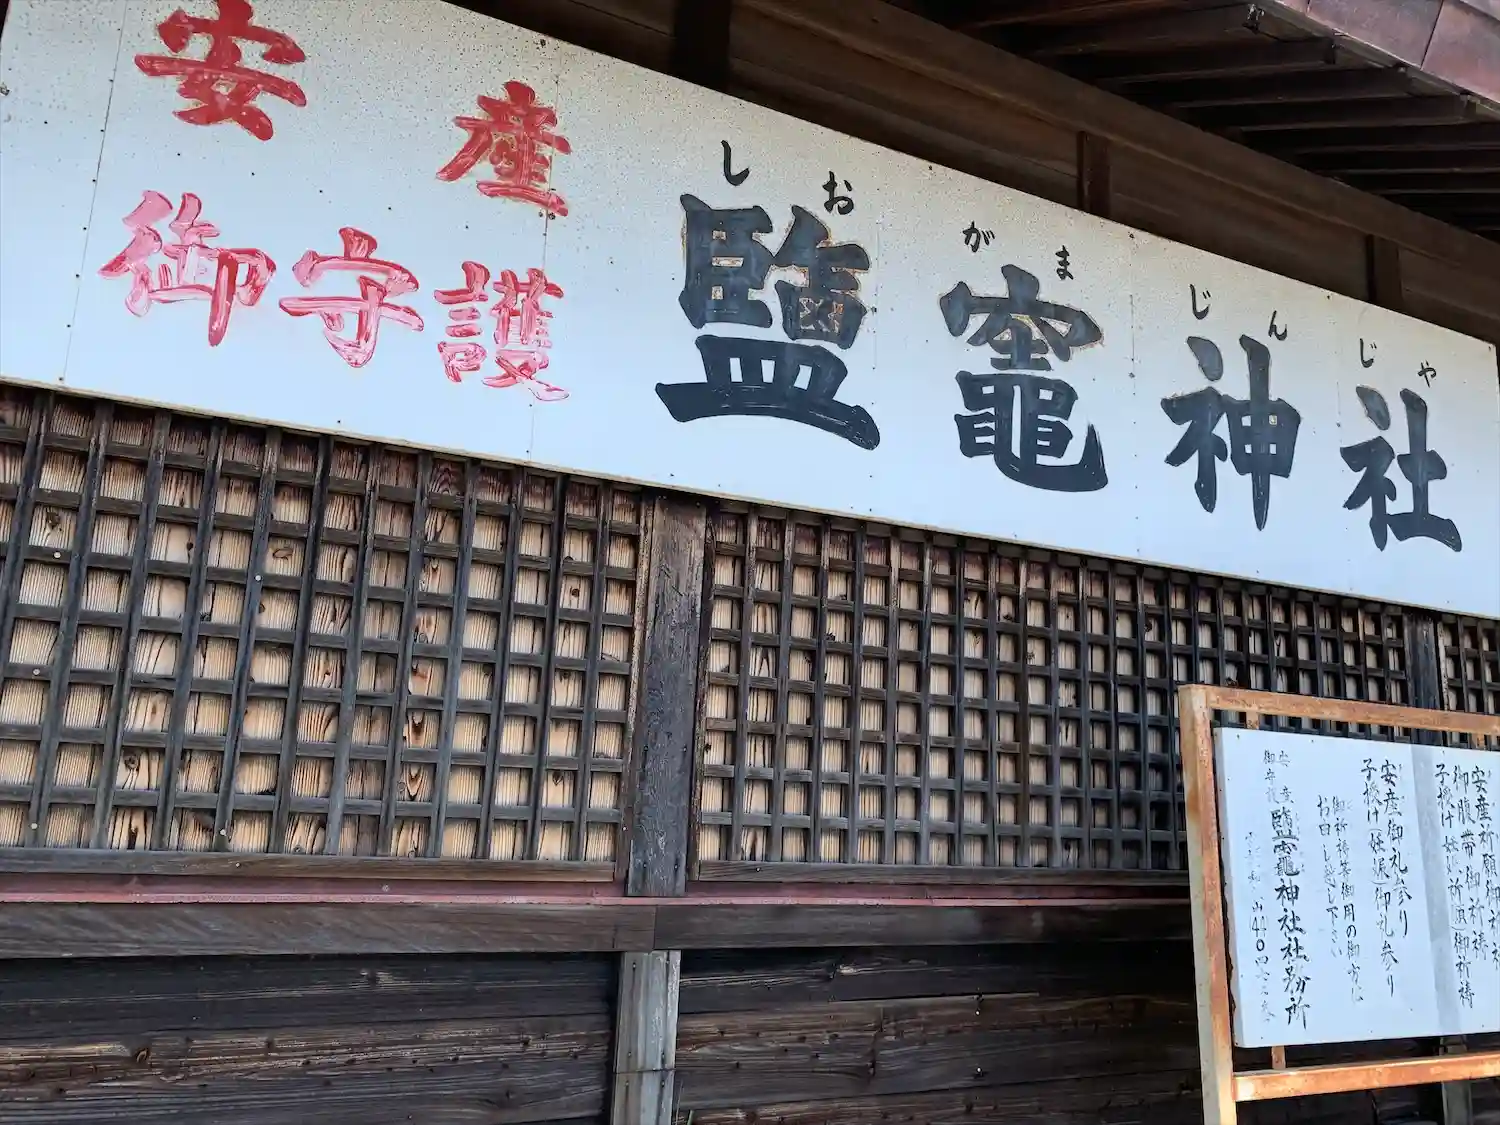 安産
御守護
しおがまじんじゃ
鹽竈神社
安産祈願御神札
御腹帯御祈祷
子授け(妊娠祈願)御祈祷
安産御礼参り
子授け(妊娠)御礼参り
御祈祷等御用の御方は
お申し越し下さい
安産
御守護
鹽竈神社社務所